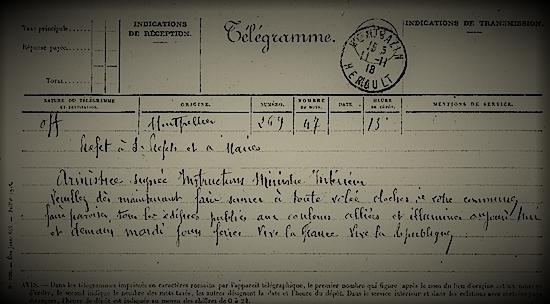 Taxe principale
Réponse payée
Total
INDICATIONS
DE RÉCEPTION.
Télégramme.
MONTBAZIN
15 5
11-11
18
HERAULT
INDICATIONS DE TRANSMISSION.
NATURE DU TÉLÉGRAMME
ET DESTINATION.
ORIGINE.
NUMÉRO.
NOMBRE
DE MOTS.
DATE
HEURE
DE DÉPÔT.
MENTIONS DE SERVICE.
Off Montpellier 269 47 15
Préfet à S. Préfets et à Maires
Armistice signée Instructions Ministre Intérieur
Veuillez dès maintenant faire sonner à toute volée cloches de votre commune
faire pavoiser tous les édifices publics aux couleurs alliées et illuminer aujourd'hui
et demain mardi jours fériés Vive la France Vive la République
AVIS. — Dans les télégrammes imprimés en caractères romains par l'appareil télégraphique, le premier nombre qui figure après le nom du lieu d'origine est un numéro
d'ordre, le second indique le nombre des mots taxés, les autres désignent la date et l'heure du dépôt. Dans le service intérieur et dans les relations avec
l'heure du dépôt est indiquée au moyen des chiffres de 0 à 24.